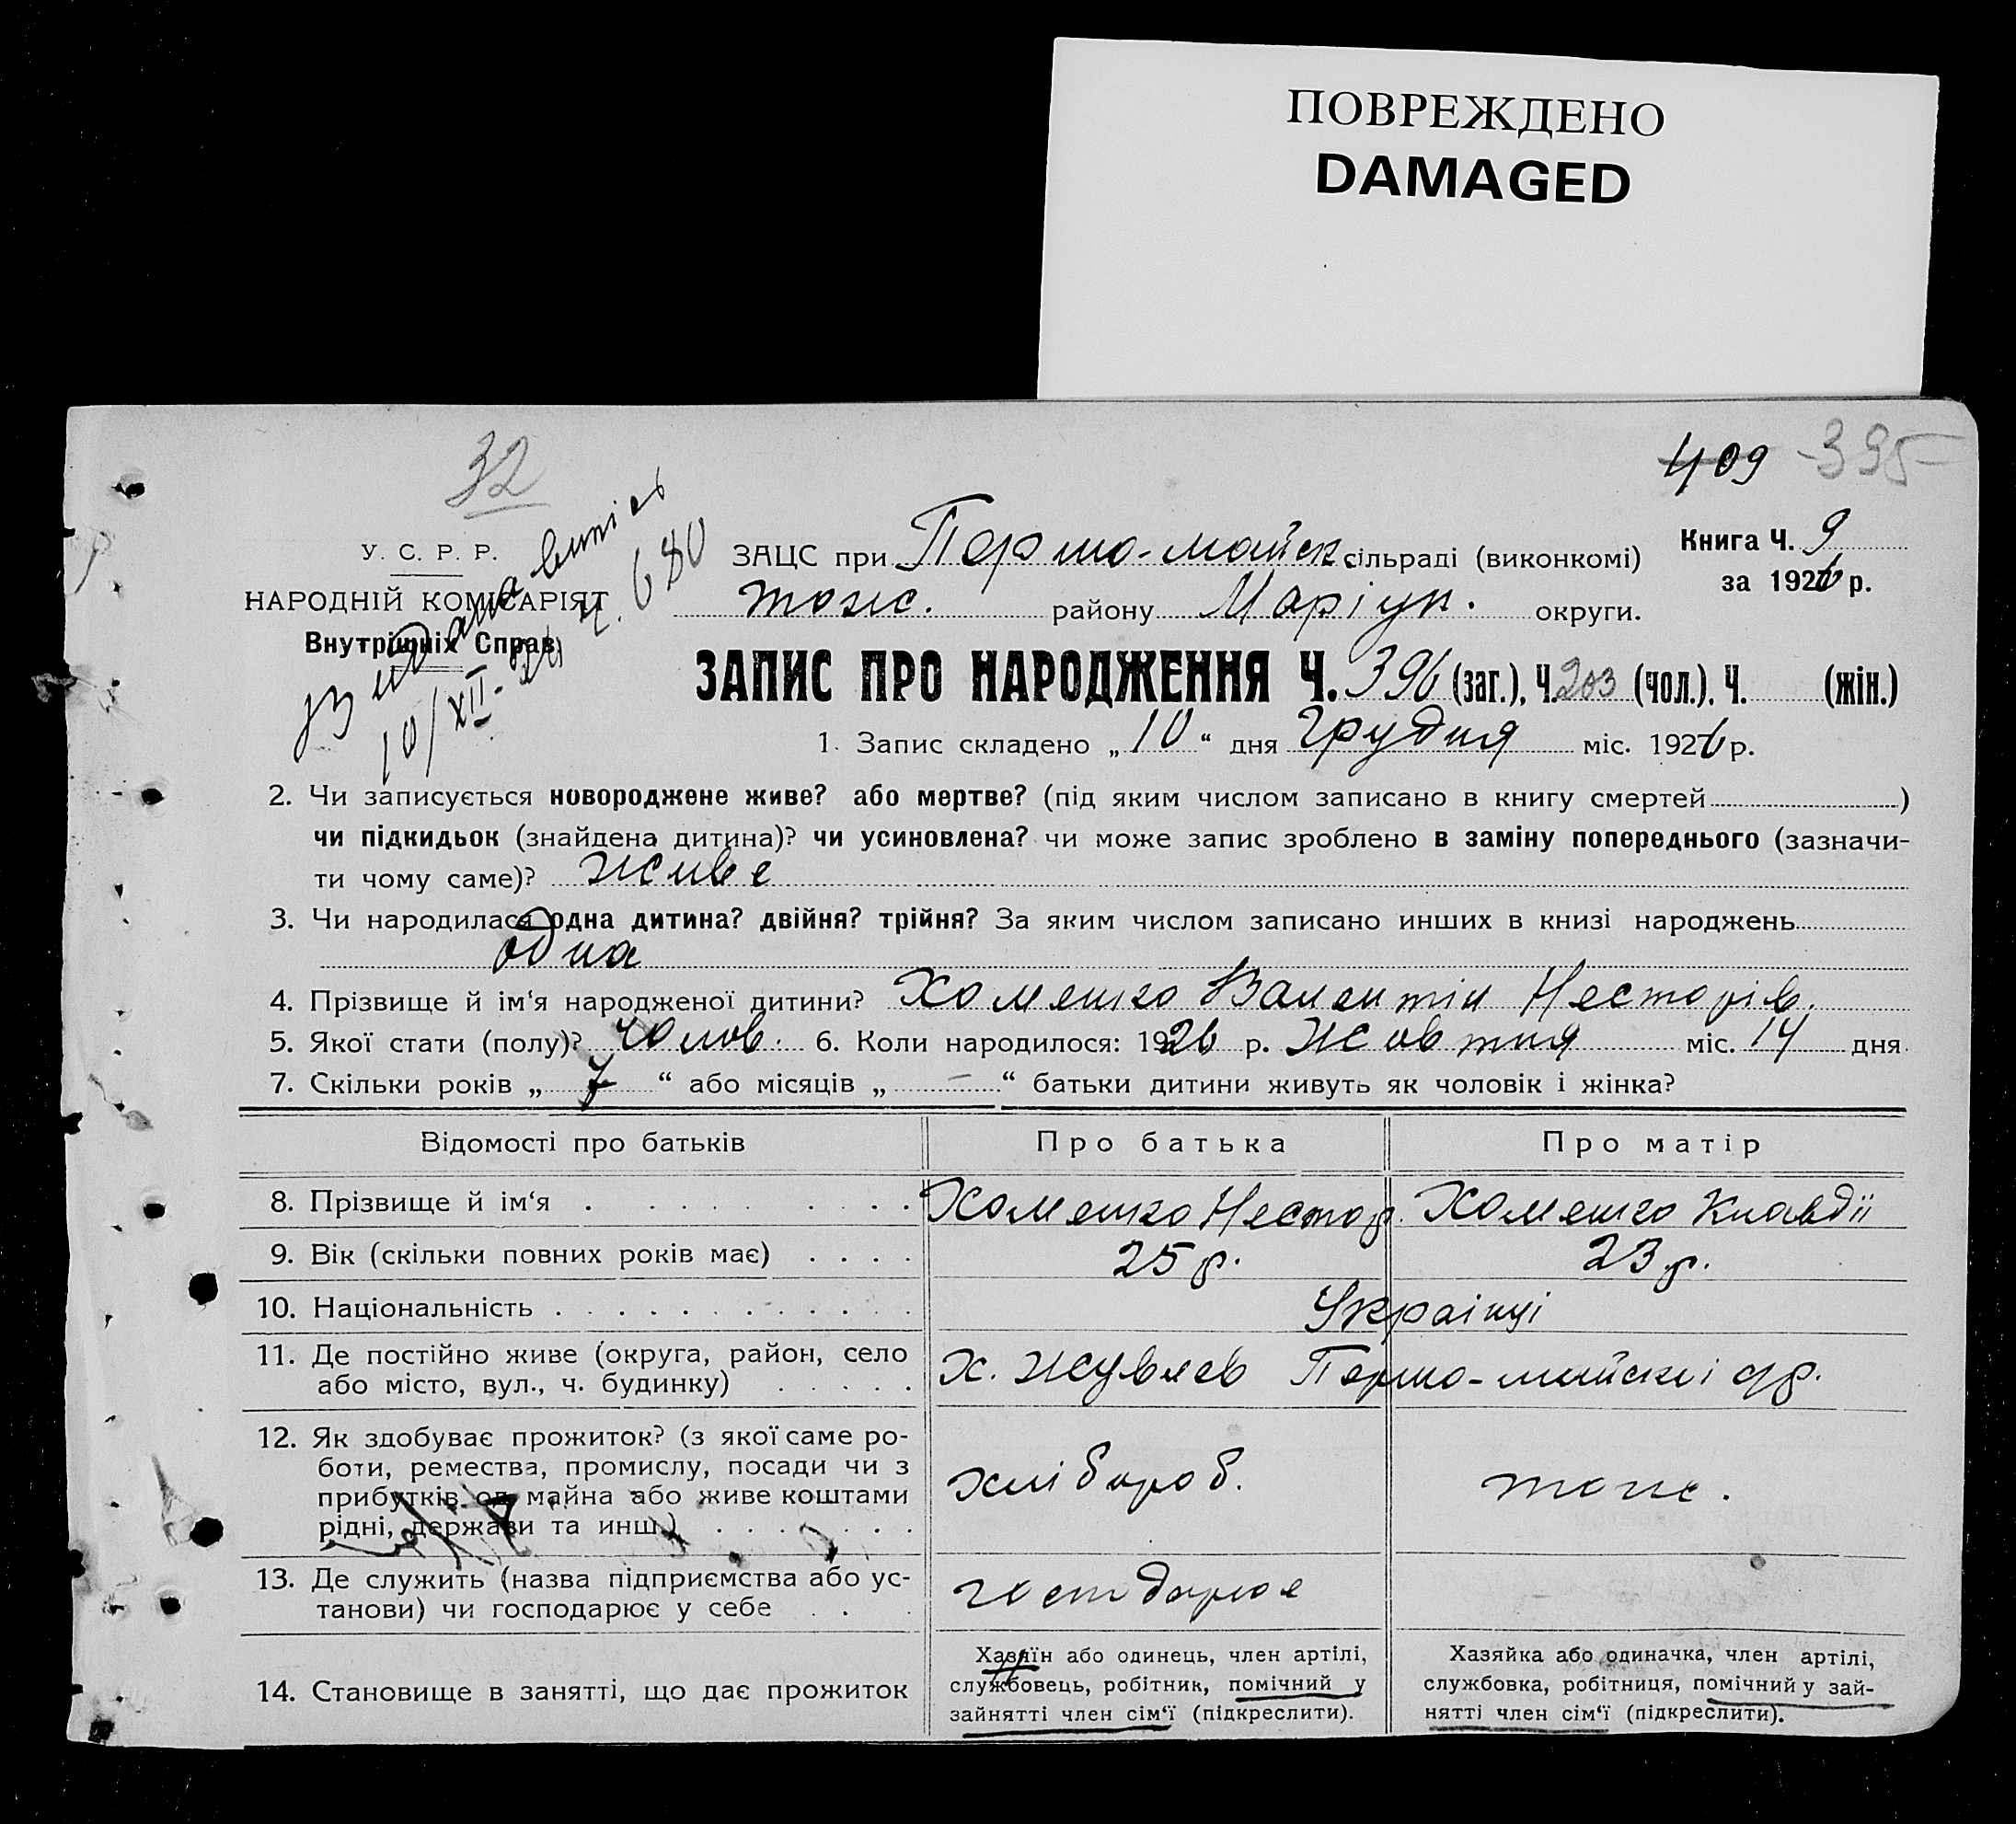 ПОВРЕЖДЕНО
DAMAGED
32
409 - 395 -
У. С. Р. Р.
НАРОДНІЙ КОМІСАРІЯТ
Внутрішніх Справ
Видана витяг
10/XII-26 ч. 680
ЗАЦС при Першо-майск. сільраді (виконкомі)
тож. району Маріуп. округи.
Книга Ч. 9
за 1926 р.
ЗАПИС ПРО НАРОДЖЕННЯ Ч. 396 (заг.), Ч. 203 (чол.), Ч. (жін.)
1. Запис складено „ 10 “ дня Грудня міс. 1926 р.
2. Чи записується новороджене живе? або мертве? (під яким числом записано в книгу смертей )
чи підкидьок (знайдена дитина)? чи усиновлена? чи може запис зроблено в заміну попереднього (зазначи-
ти чому саме)? живе
3. Чи народилася одна дитина? двійня? трійня? За яким числом записано инших в книзі народжень
одна
4. Прізвище й ім‘я народженої дитини? Хоменко Валентін Несторів.
5. Якої стати (полу)? чолов. 6. Коли народилося: 1926 р. Жовтня міс. 14 дня
7. Скільки років „ 7 “ або місяців „ – “ батьки дитини живуть як чоловік і жінка?
Відомості про батьків Про батька Про матір
8. Прізвище й ім‘я Хоменко Нестор. Хоменко Клавдії
9. Вік (скільки повних років має) 25 р. 23 р.
10. Національність Українці
11. Де постійно живе (округа, район, село
або місто, вул., ч. будинку)
Х. Першо-майскі
12. Як здобуває прожиток? (з якої саме ро-
боти, ремества, промислу, посади чи з
прибутків од майна або живе коштами
рідні, держави та инш.)
хлібороб. тож.
13. Де служить (назва підприємства або ус-
танови) чи господарює у себе
господарює
14. Становище в занятті, що дає прожиток
Хазяїн або одинець, член артілі,
службовець, робітник, помічний у
зайнятті член сім‘ї (підкреслити).
Хазяйка або одиначка, член артілі,
службовка, робітниця, помічний у зай-
нятті член сім‘ї (підкреслити).